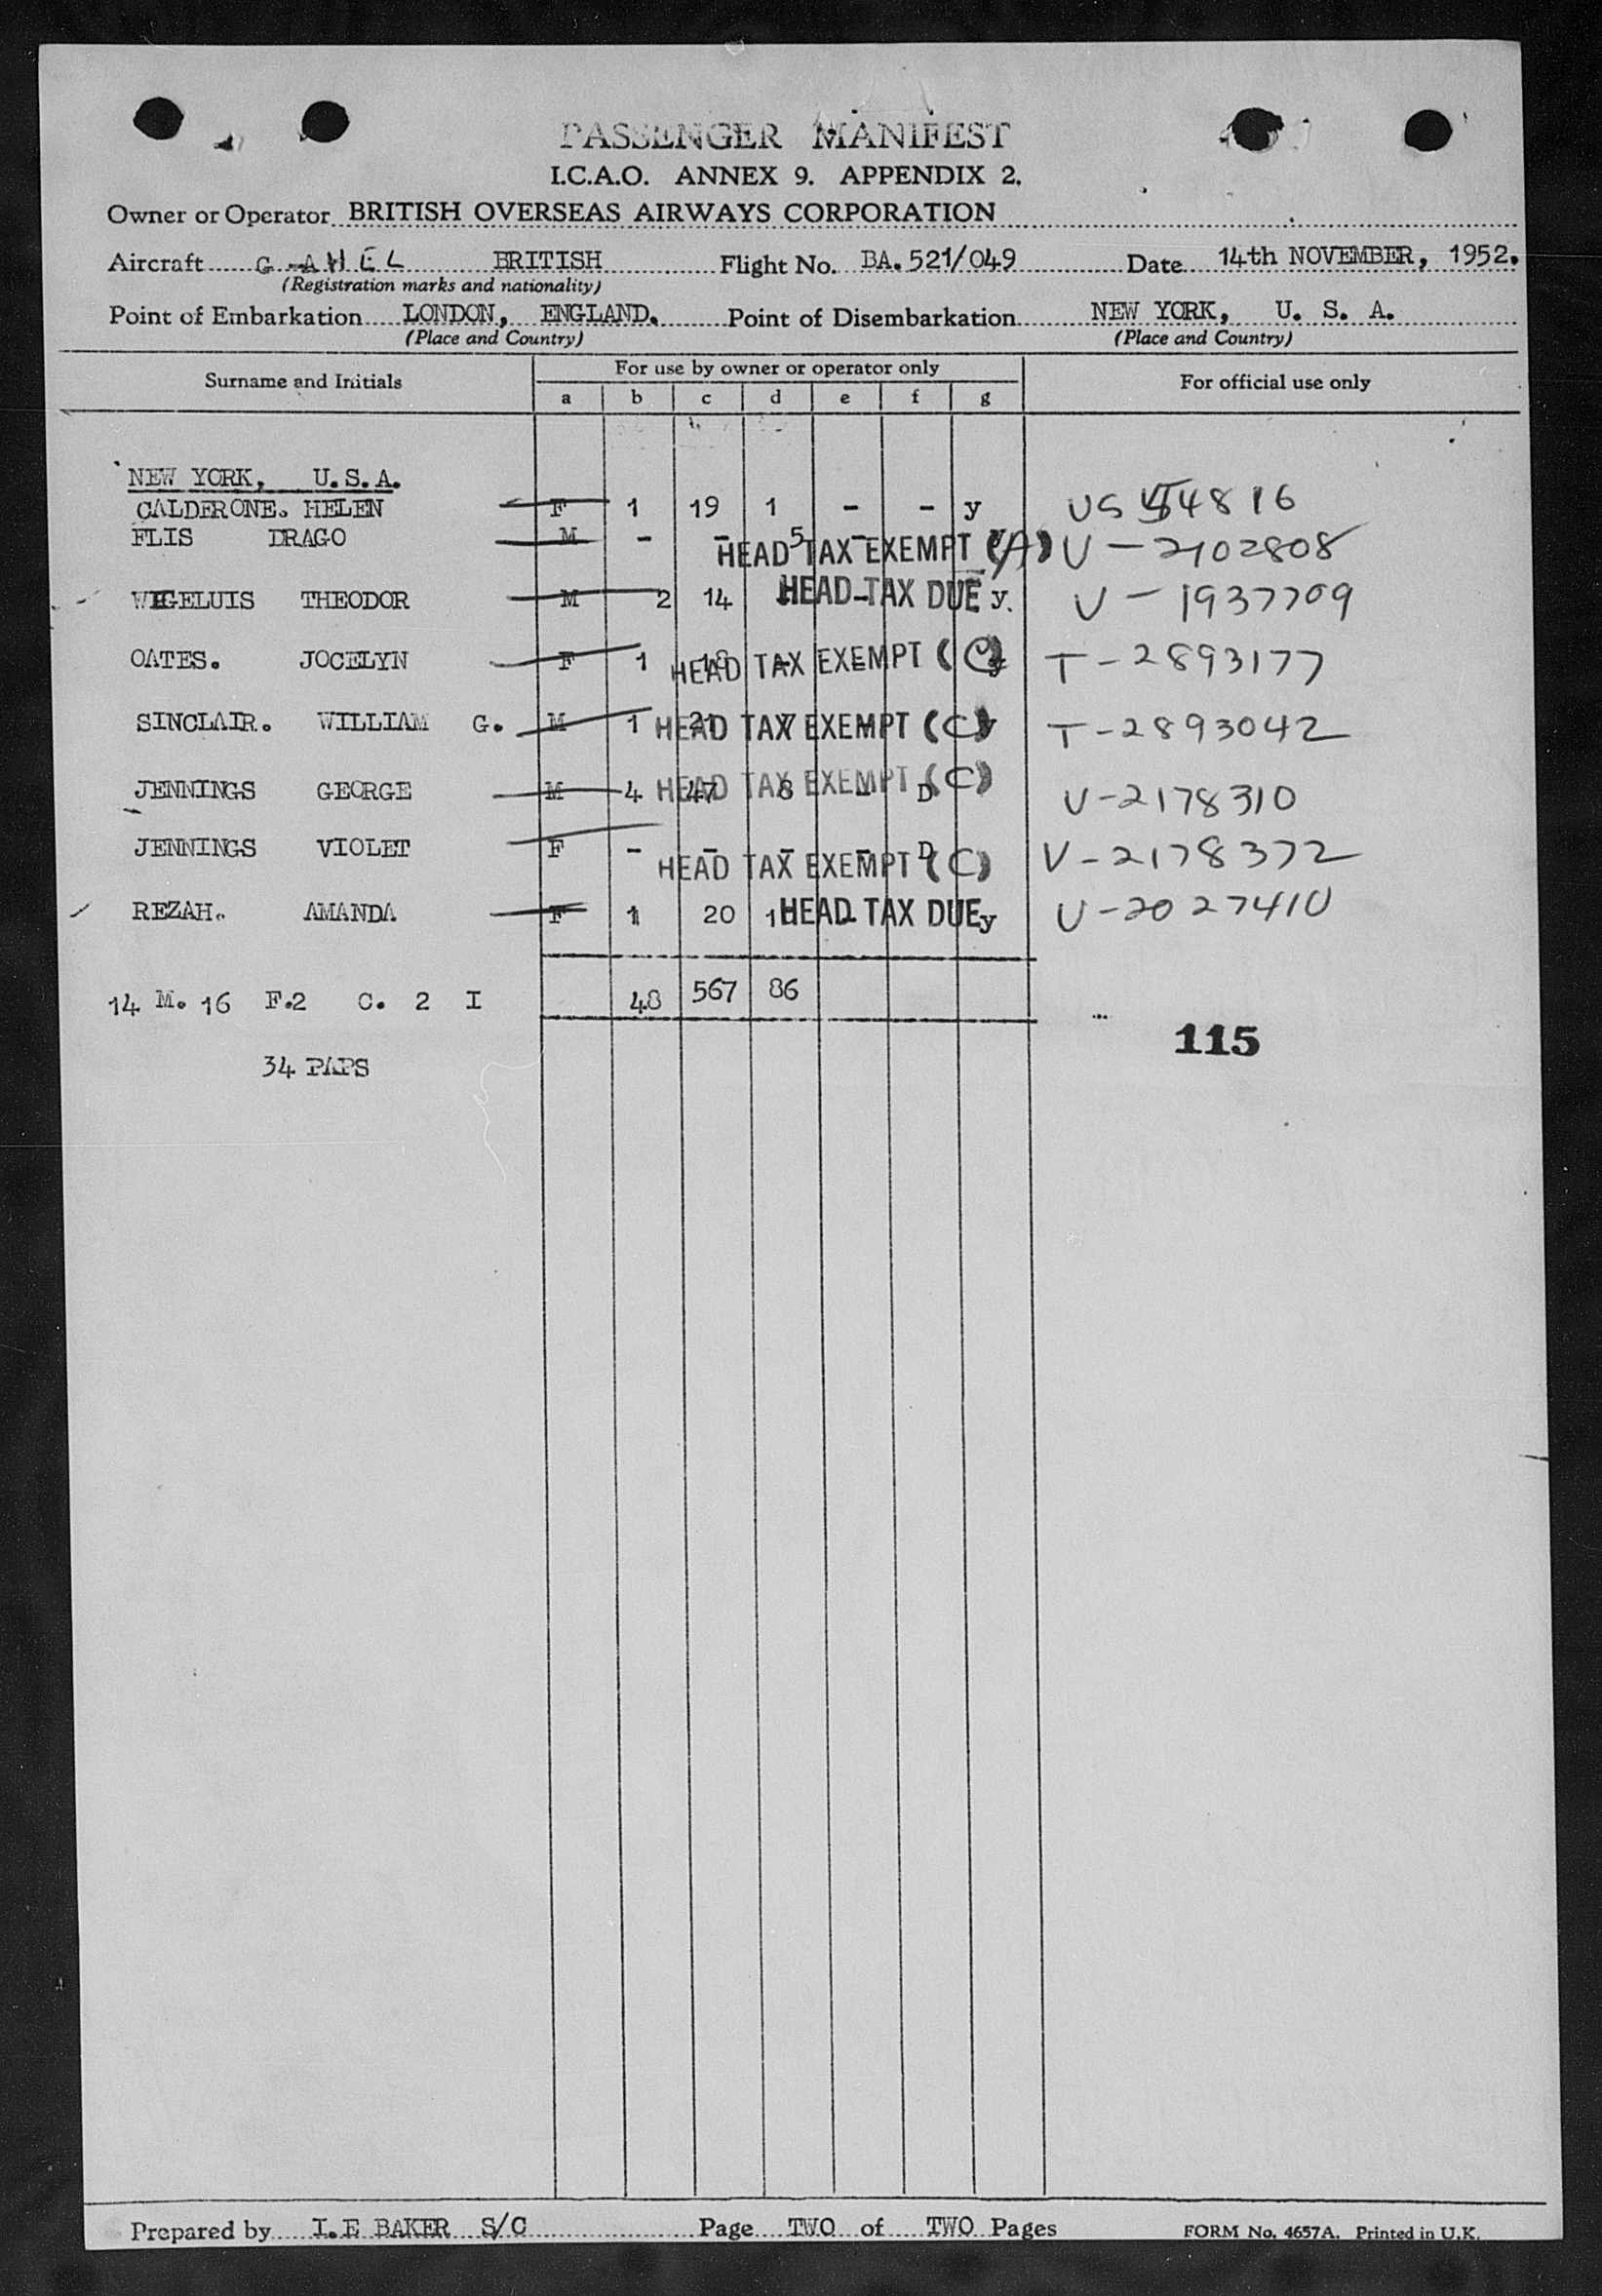 PASSENGER MANIFEST
I.C.A.O. ANNEX 9. APPENDIX 2.
Owner or Operator BRITISH OVERSEAS AIRWAYS CORPORATION
Aircraft G-AHEL BRITISH Flight No. BA.521/049 Date 14th NOVEMBER, 1952.
(Registration marks and nationality)
Point of Embarkation LONDON, ENGLAND. Point of Disembarkation NEW YORK, U. S. A.
(Place and Country) (Place and Country)
Surname and Initials For use by owner or operator only For official use only
a b c d e f g
NEW YORK, U.S.A.
CALDERONE. HELEN F 1 19 1 - - y US 4816
FLIS DRAGO M - - 5 - HEAD TAX EXEMPT (A) V-2102808
WIGELUIS THEODOR M 2 14 - HEAD TAX DUE y. V-1937709
OATES. JOCELYN F 1 18 - - HEAD TAX EXEMPT (C) y T-2893177
SINCLAIR. WILLIAM G. M 1 21 7 - HEAD TAX EXEMPT (C) y T-2893042
JENNINGS GEORGE M 4 47 8 - D HEAD TAX EXEMPT (C) V-2178310
JENNINGS VIOLET F - - - - D HEAD TAX EXEMPT (C) V-2178372
REZAH. AMANDA F 1 20 1 - HEAD TAX DUE y V-2027410
14 M. 16 F.2 C. 2 I 48 567 86
115
34 PAPS
Prepared by I.E BAKER S/C Page TWO of TWO Pages FORM No. 4657A. Printed in U.K.